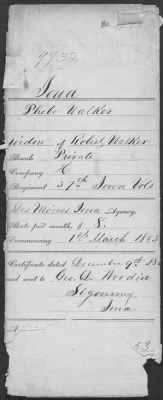 No.
9932
Iowa
Phebe Walker
widow of Robert Walker
Rank Private
Company H
Regiment 37th Iowa Vols
Des Moines Iowa Agency.
Rate per month, $ 8.
Commencing 1st March 1863
Certificate dated December 9th
and sent to Geo. D. Woodin
Sigourney
Iowa.
53